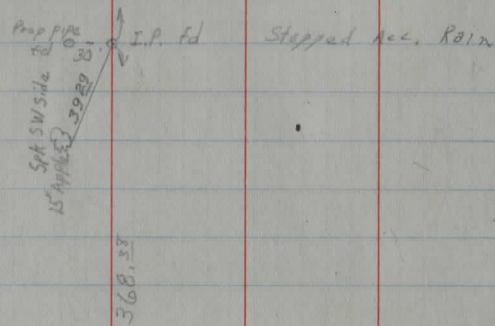 Prop pipe
fd
30
I.P. fd
Stopped Acc. Rain
39 29
Spk SW Side
15" Apple
368.38